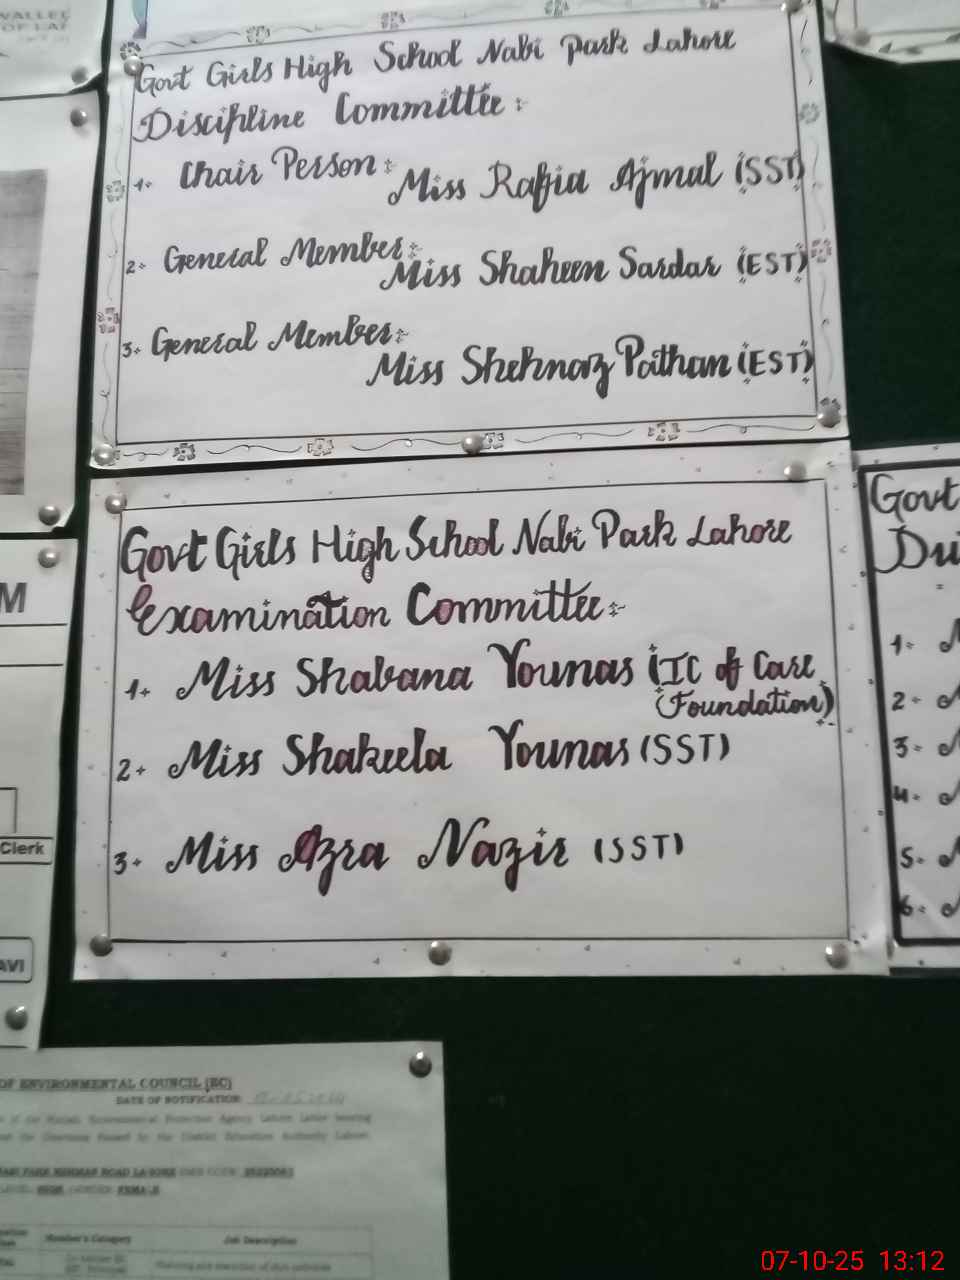 VALLEE
OF LAF
Govt Girls High School Nabi Park Lahore
Discipline Committee :
1. Chair Person :
Miss Rafia Ajmal (SST)
2. General Member :
Miss Shaheen Sardar (EST)
3. General Member :
Miss Shehnaz Pathan (EST)
Govt Girls High School Nabi Park Lahore
Examination Committee :
1. Miss Shabana Younas (TC of Care
(Foundation)
2. Miss Shakeela Younas (SST)
3. Miss Azra Nazir (SST)
Govt
Du
1.
2.
3.
4.
5.
6.
M
Clerk
AVI
OF ENVIRONMENTAL COUNCIL (EC)
DATE OF NOTIFICATION
ROAD LAHORE
Member's Category
Job Description
07-10-25 13:12